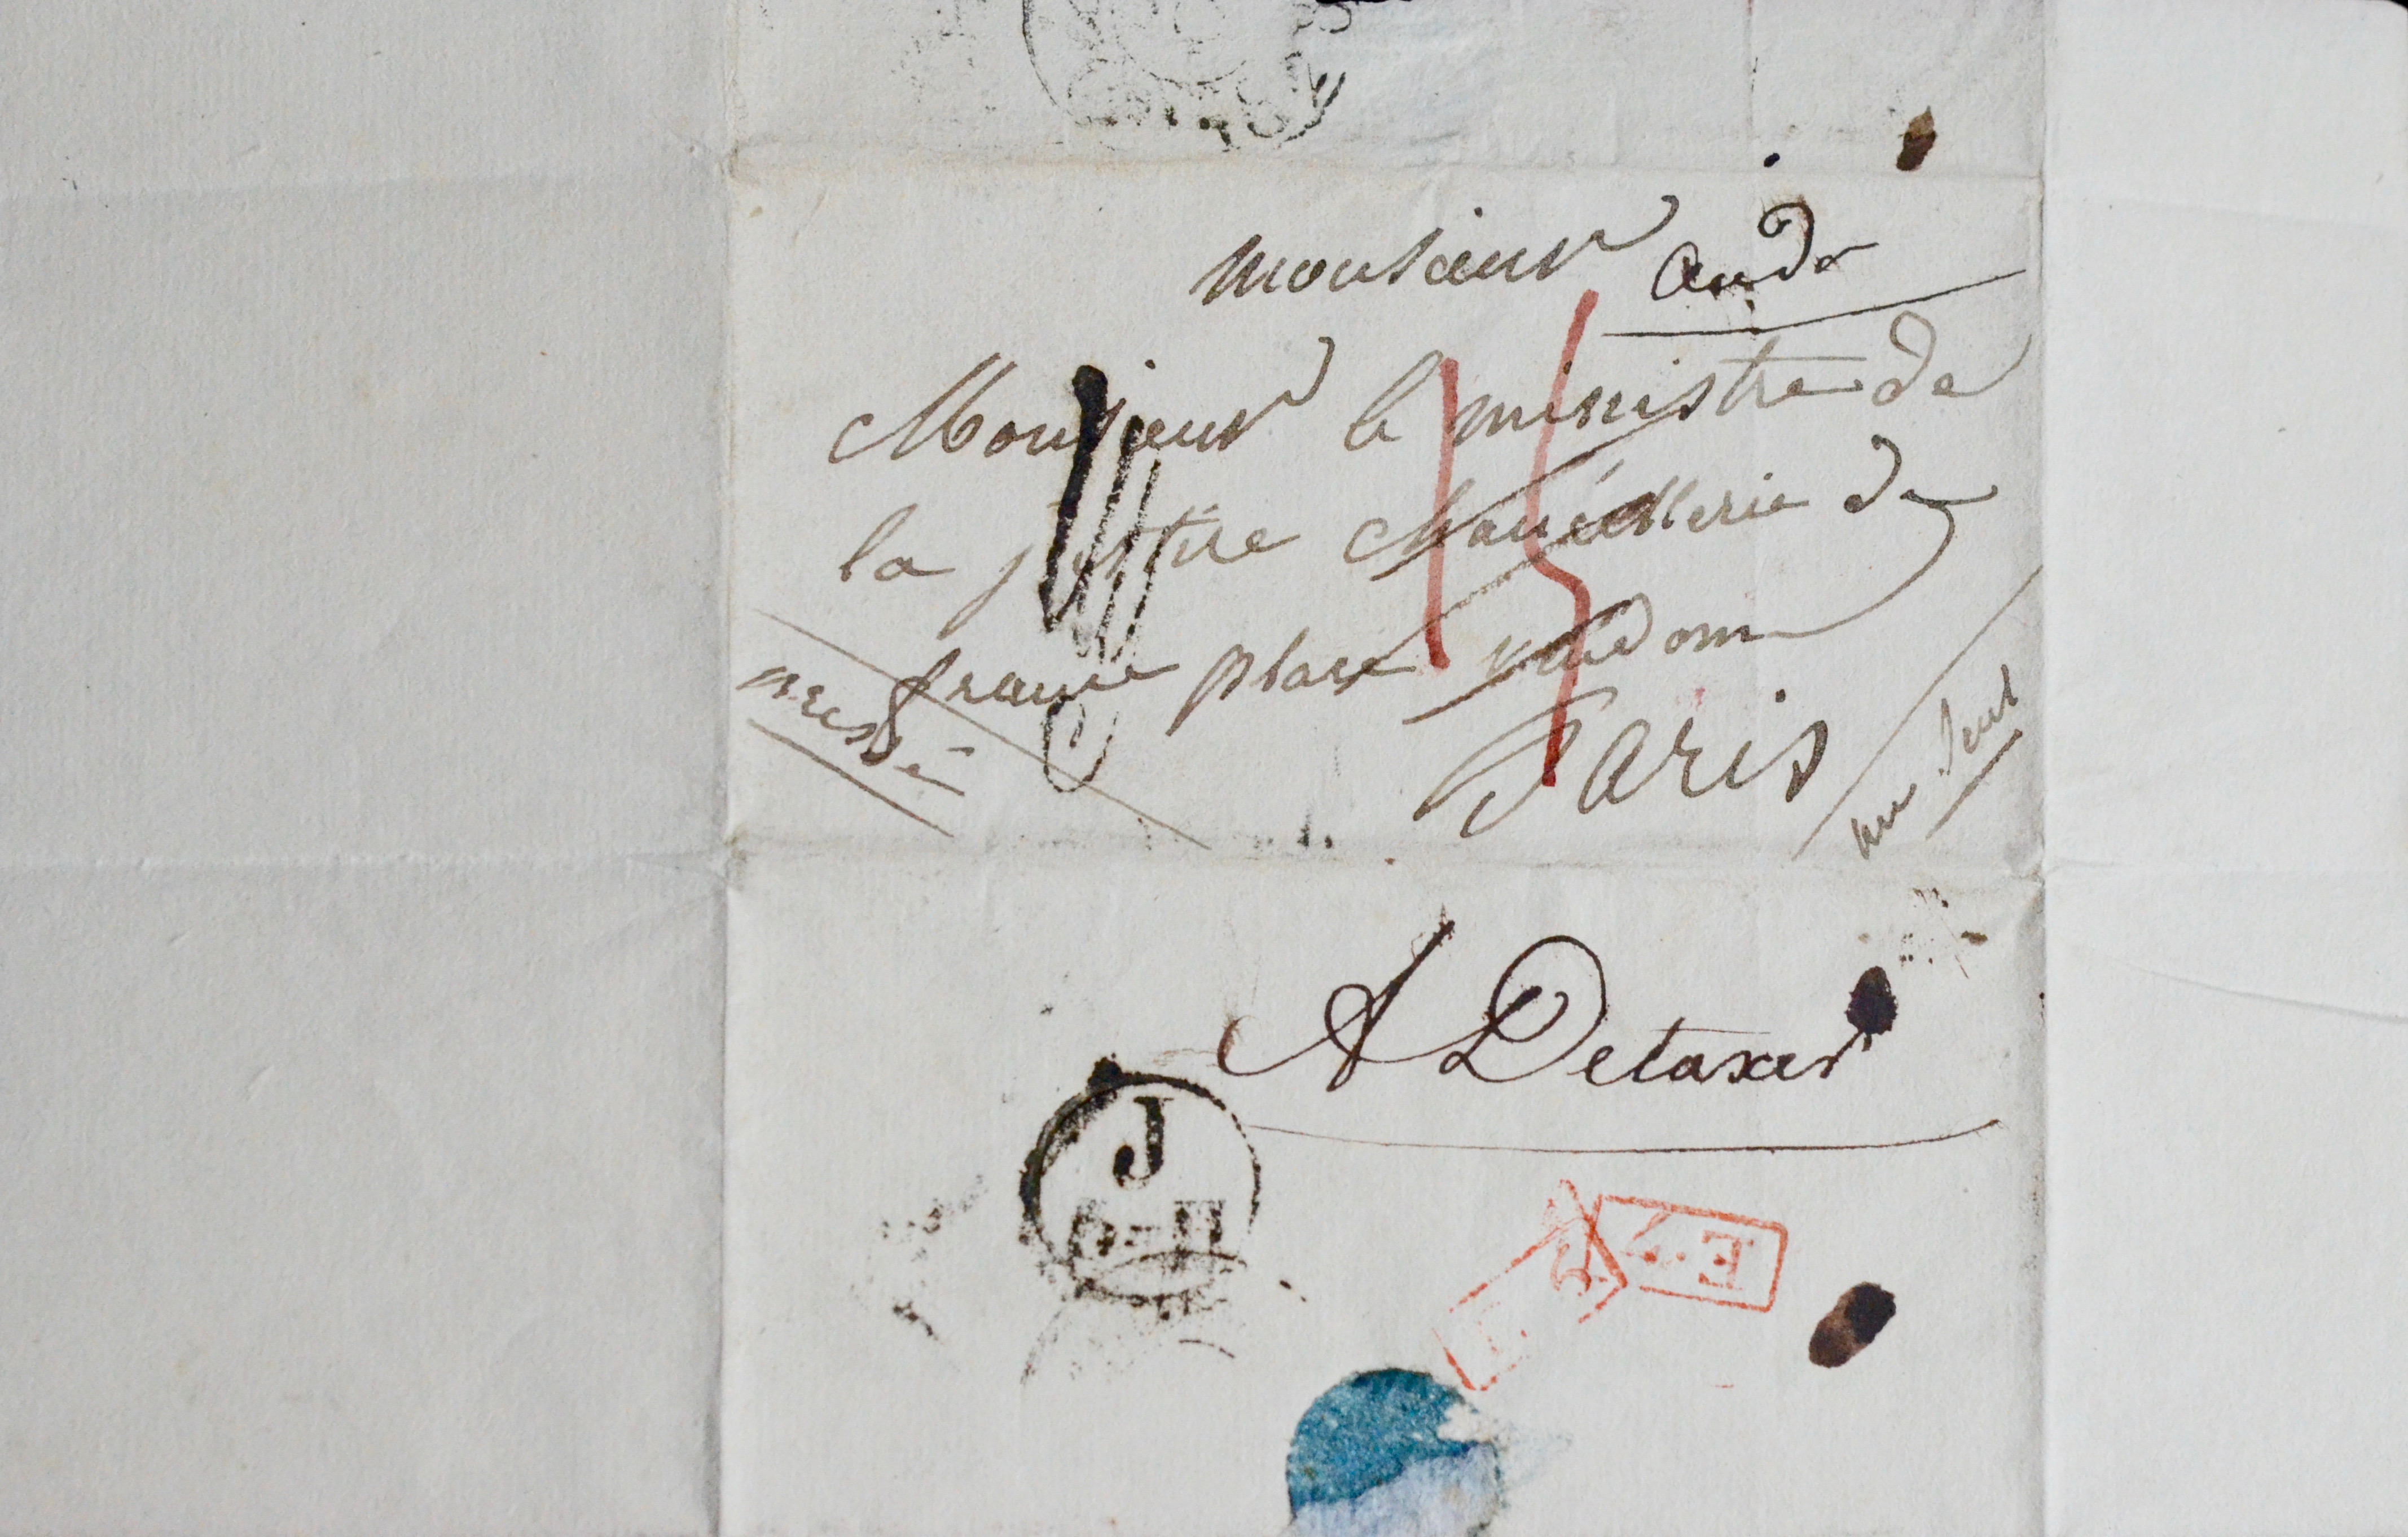 Monsieur
Monsieur le ministre de
la justice chancellerie de
france place vendome
Paris
pressée
A Detaxer
J